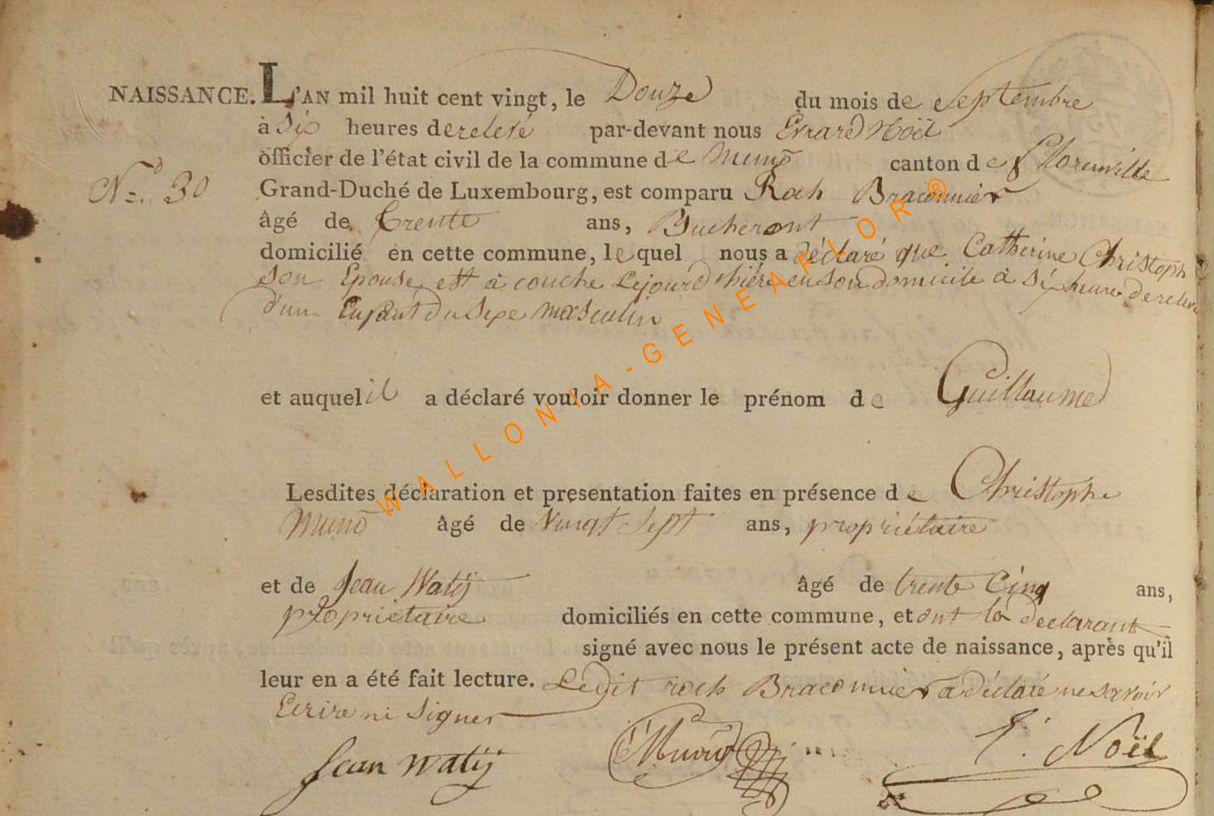 NAISSANCE. L'AN mil huit cent vingt, le Douze du mois de Septembre
à Six heures de relevé par-devant nous Evrard Noël
officier de l'état civil de la commune de Muno canton de Florenville
N.º 30 Grand-Duché de Luxembourg, est comparu Roch Braconnier
âgé de trente ans, Bucheront
domicilié en cette commune, lequel nous a déclaré que Catherine Christoph
son Epouse est à couche Lejourd'hiére en son domicile à Six heure de releve
d'un Enfant du Sexe masculin
et auquel il a déclaré vouloir donner le prénom de Guillaume
Lesdites déclaration et presentation faites en présence de Christophe
Muno âgé de Vingt Sept ans, propriétaire
et de Jean Watij âgé de trente Cinq ans,
propriétaire domiciliés en cette commune, et ont le déclarant
signé avec nous le présent acte de naissance, après qu'il
leur en a été fait lecture. Ledit roch Braconnier a déclaré ne savoir
Ecrire ni Signer
Jean Watij C Muno E. Noël
WALLONIA-GENEAFLOR®